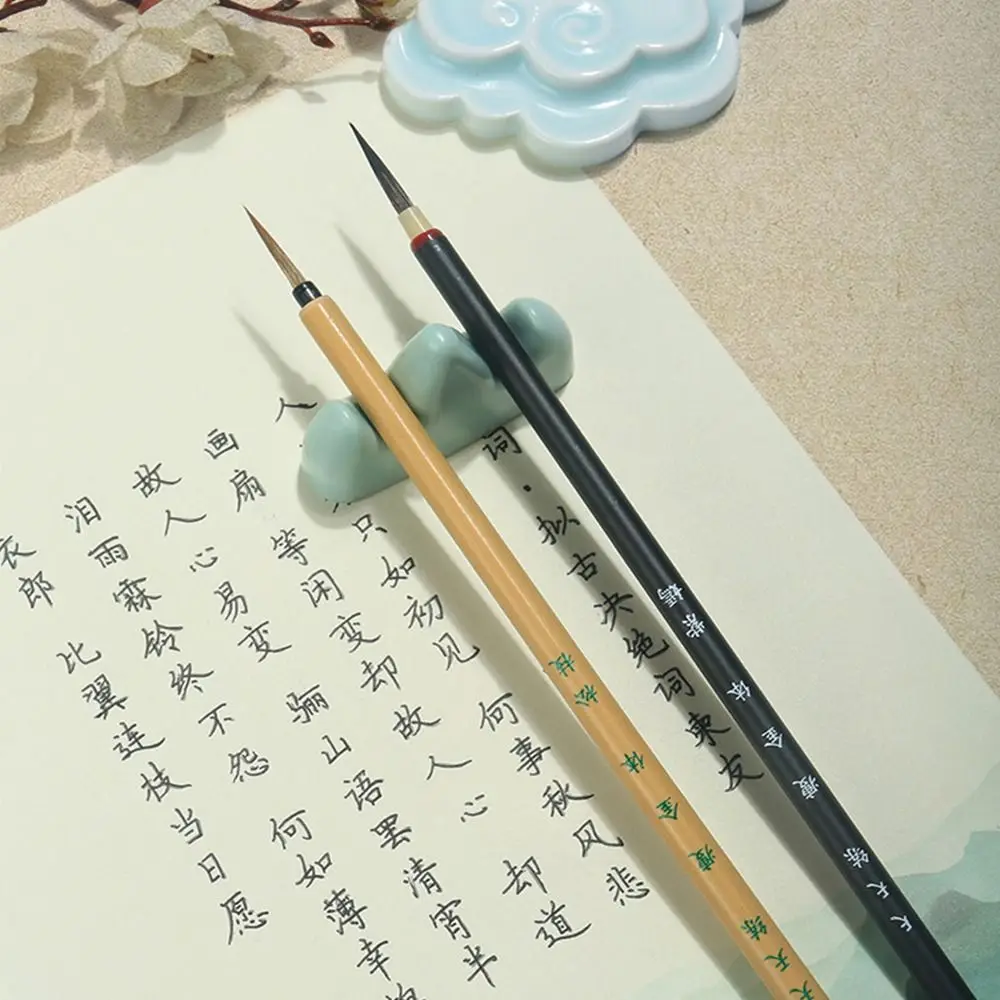 词·拟古决绝词柬友
人
只如初见 何事秋风悲
画扇 等闲变却故人心 却道
故人心易变 骊山语罢清宵半
泪雨霖铃终不怨 何如薄幸
衣郎 比翼连枝当日愿
天天练 瘦金体 松
天天练 瘦金体 紫嫣